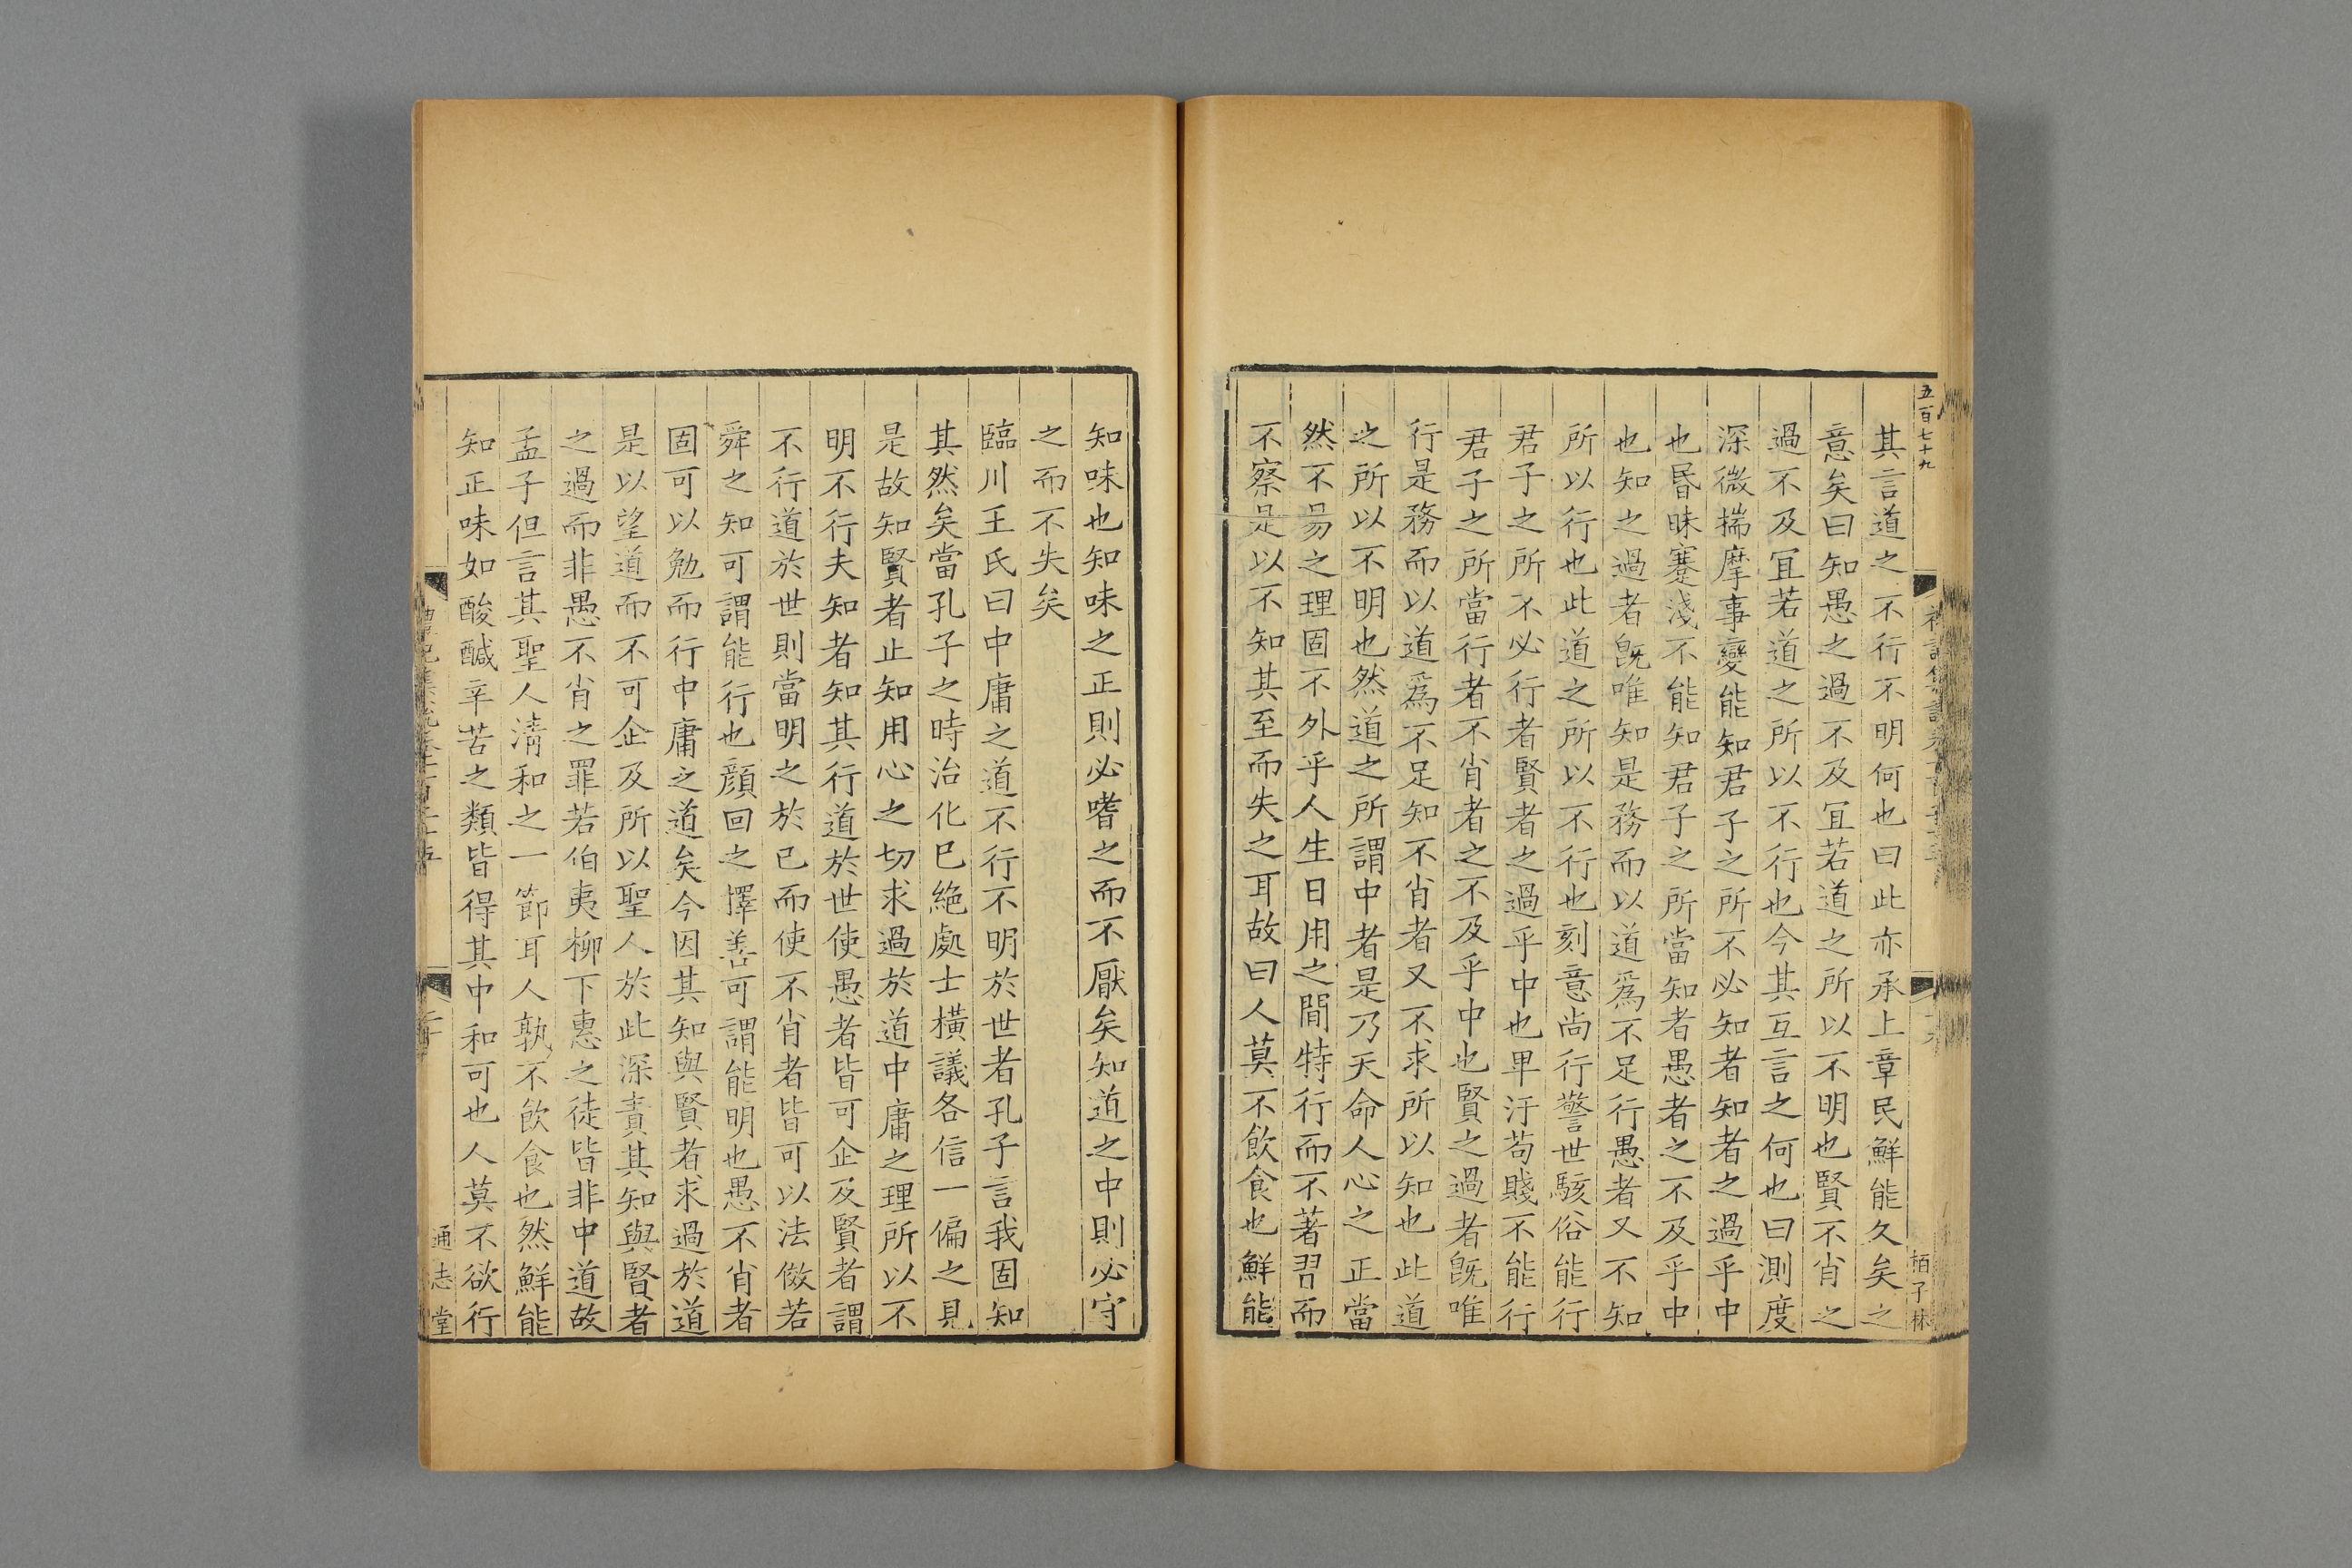 五百七十九
栢子林
其言道之不行不明何也曰此亦承上章民鮮能久矣之
意矣曰知愚之過不及冝若道之所以不明也賢不肖之
過不及冝若道之所以不行也今其互言之何也曰測度
深微揣摩事變能知君子之所不必知者知者之過乎中
也昬昧蹇淺不能知君子之所當知者愚者之不及乎中
也知之過者旣唯知是務而以道爲不足行愚者又不知
所以行也此道之所以不行也刻意尚行警世駭俗能行
君子之所不必行者賢者之過乎中也卑汙苟賤不能行
君子之所當行者不肖者之不及乎中也賢之過者旣唯
行是務而以道爲不足知不肖者又不求所以知也此道
之所以不明也然道之所謂中者是乃天命人心之正當
然不昜之理固不外乎人生日用之間特行而不著習而
不察是以不知其至而失之耳故曰人莫不飲食也鮮能
知味也知味之正則必嗜之而不厭矣知道之中則必守
之而不失矣
臨川王氏曰中庸之道不行不明於世者孔子言我固知
其然矣當孔子之時治化巳絶處士橫議各信一偏之見
是故知賢者止知用心之切求過於道中庸之理所以不
明不行夫知者知其行道於世使愚者皆可企及賢者謂
不行道於世則當明之於己而使不肖者皆可以法倣若
舜之知可謂能行也顔回之擇善可謂能明也愚不肖者
固可以勉而行中庸之道矣今因其知與賢者求過於道
是以望道而不可企及所以聖人於此深責其知與賢者
之過而非愚不肖之罪若伯夷柳下惠之徒皆非中道故
孟子但言其聖人淸和之一節耳人孰不飲食也然鮮能
知正味如酸醎辛苦之類皆得其中和可也人莫不欲行
通志堂